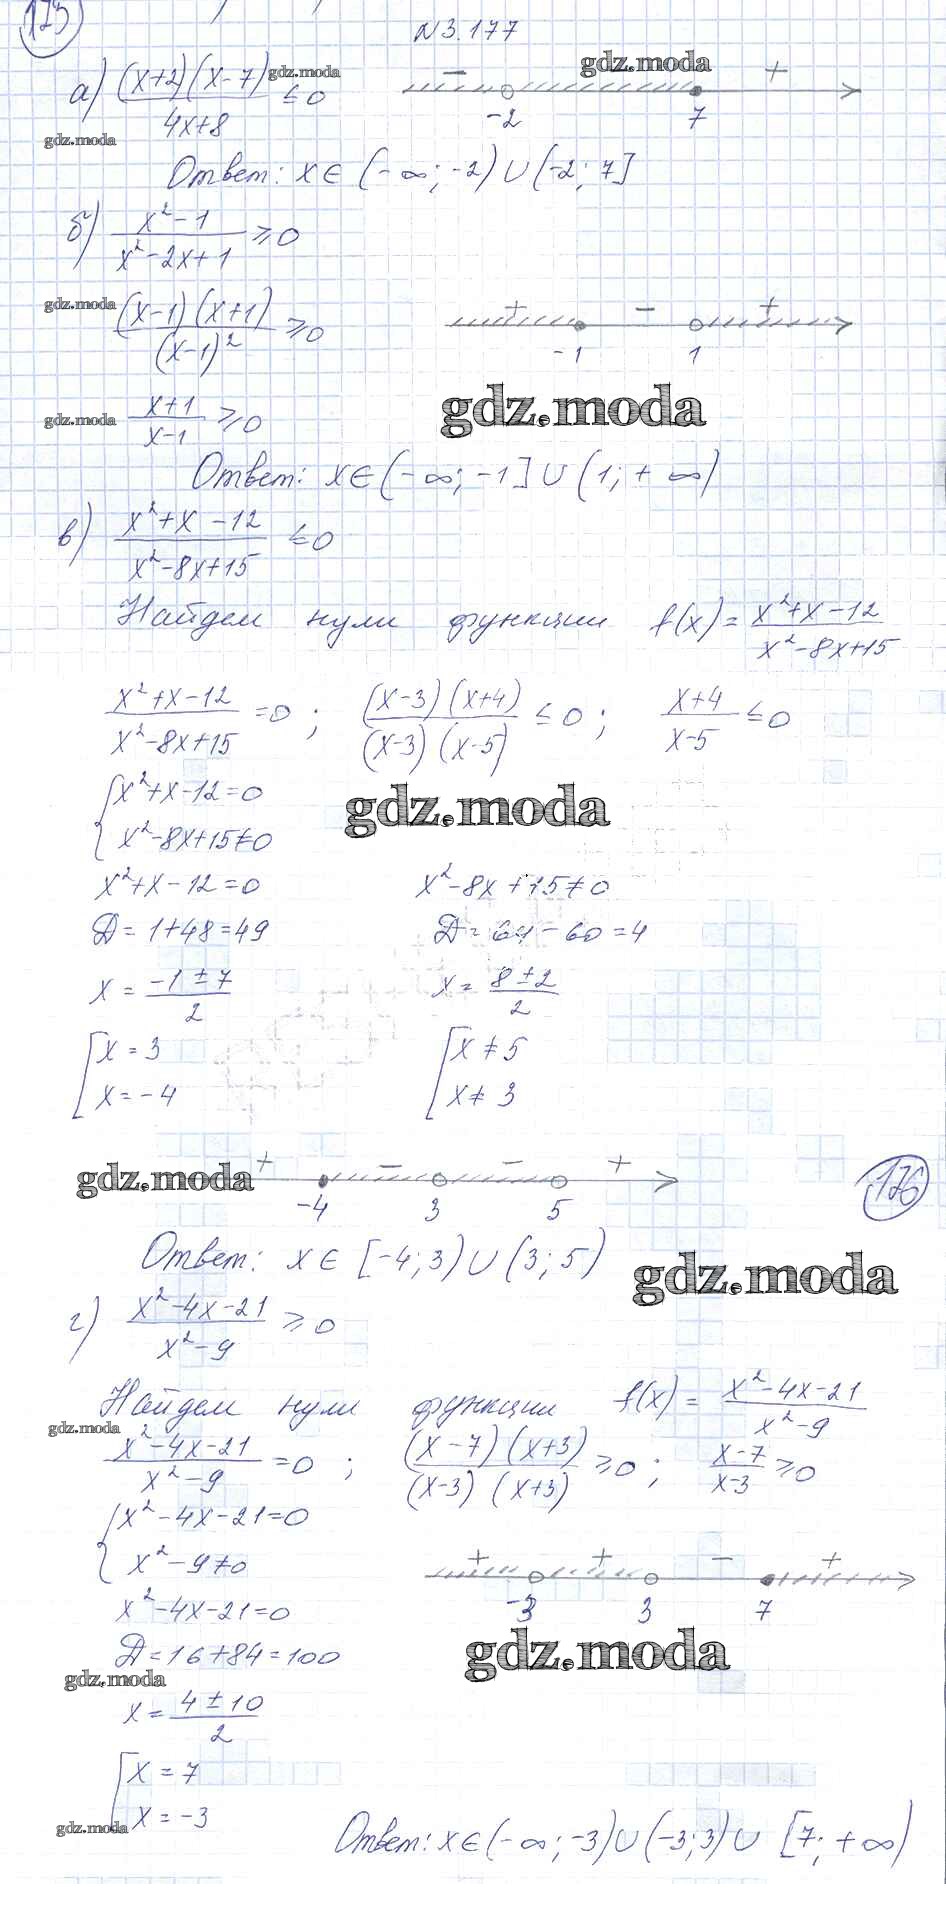 123
N 3.177
а) (x+2)(x-7) / 4x+8 ≤ 0
gdz.moda
gdz.moda
- +
-2 7
gdz.moda
Ответ: x ∈ (-∞; -2) ∪ (-2; 7]
б) x²-1 / x²-2x+1 ≥ 0
gdz.moda
(x-1)(x+1) / (x-1)² ≥ 0
+ - +
-1 1
gdz.moda
gdz.moda
x+1 / x-1 ≥ 0
Ответ: x ∈ (-∞; -1] ∪ (1; +∞)
в) x²+x-12 / x²-8x+15 ≤ 0
Найдем нули функции f(x) = x²+x-12 / x²-8x+15
x²+x-12 / x²-8x+15 = 0 ; (x-3)(x+4) / (x-3)(x-5) ≤ 0 ; x+4 / x-5 ≤ 0
{ x²+x-12=0
x²-8x+15≠0
gdz.moda
x²+x-12=0 x²-8x+15≠0
Д=1+48=49 Д=64-60=4
x = -1±7 / 2 x = 8±2 / 2
[ x=3 [ x≠5
x=-4 x≠3
gdz.moda
+ - - +
-4 3 5
176
Ответ: x ∈ [-4; 3) ∪ (3; 5)
gdz.moda
г) x²-4x-21 / x²-9 ≥ 0
Найдем нули функции f(x) = x²-4x-21 / x²-9
gdz.moda
x²-4x-21 / x²-9 = 0 ; (x-7)(x+3) / (x-3)(x+3) ≥ 0 ; x-7 / x-3 ≥ 0
{ x²-4x-21=0
x²-9≠0
+ + - +
-3 3 7
x²-4x-21=0
gdz.moda
Д=16+84=100
gdz.moda
x = 4±10 / 2
[ x=7
x=-3
gdz.moda
Ответ: x ∈ (-∞; -3) ∪ (-3; 3) ∪ [7; +∞)